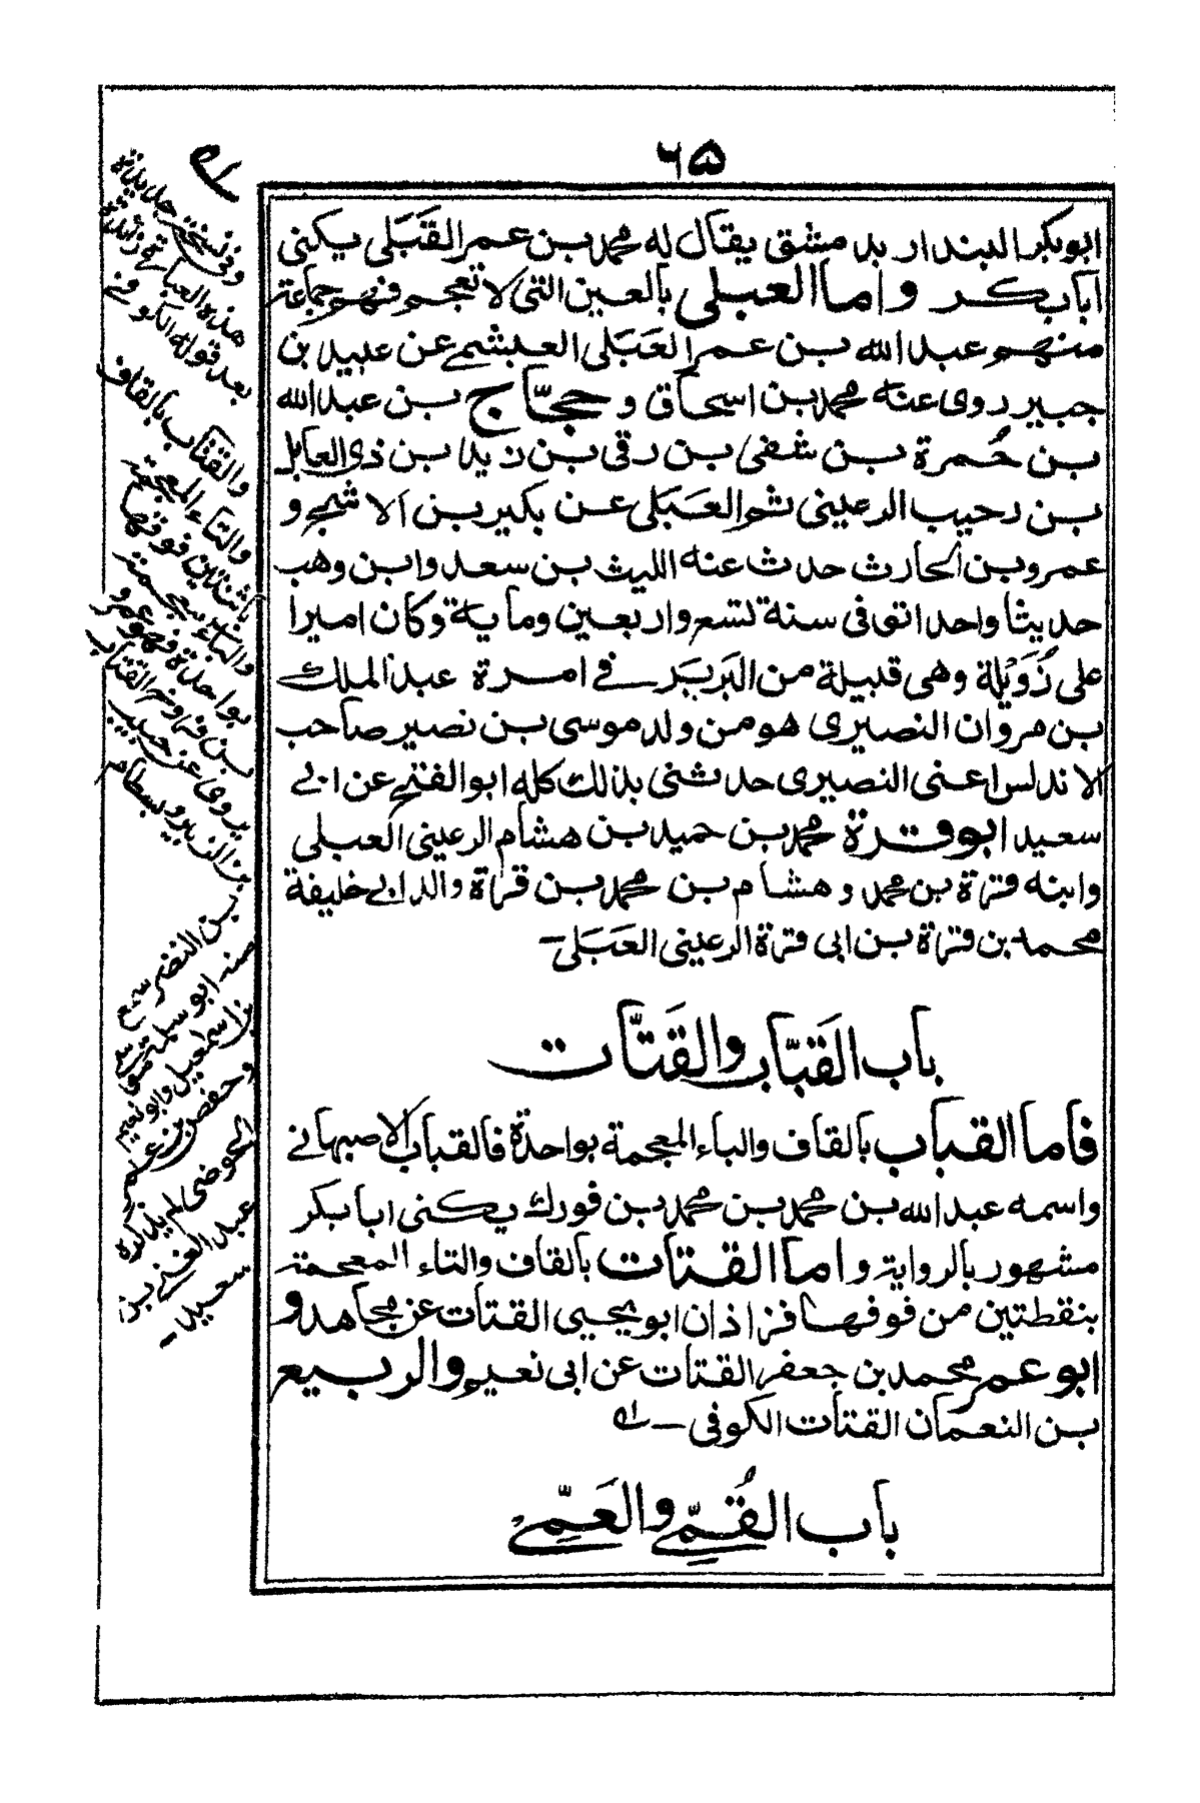 ٦٥
ابو بكر البندار بدمشق يقال له محمد بن عمر القَبَلى يكنى
ابا بكر واما العبلى بالعين التى لا تعجم فهم جماعة
منهم عبد الله بن عمر العَبَلى العبشمى عن عبيد بن
جبير روى عنه محمد بن اسحاق و حجّاج بن عبد الله
بن حُمرة بن شفى بن رقى بن زيد بن ذى العابل
بن رحيب الرعينى ثم العَبَلى عن بكير بن الاشج و
عمرو بن الحارث حدث عنه الليث بن سعد وابن وهب
حديثا واحدا تق فى سنة تسع واربعين وماية وكان اميرا
على زُوَيْلة وهى قبيلة من البَربَر فى امرة عبد الملك
بن مروان النصيرى هو من ولد موسى بن نصير صاحب
الاندلس اعنى النصيرى حدثنى بذلك كله ابو الفتح عن ابى
سعيد ابو قرة محمد بن حميد بن هشام الرعينى العبلى
وابنه قرة بن محمد و هشام بن محمد بن قرة والد ابى خليفة
محمد بن قرة بن ابى قرة الرعينى العَبَلى –
باب القَبّاب والقَتّات
فاما القباب بالقاف والباء المعجمة بواحدة فالقباب الاصبهانى
واسمه عبد الله بن محمد بن محمد بن فورك يكنى ابا بكر
مشهور بالرواية واما القتات بالقاف والتاء المعجمة
بنقطتين من فوقها فزاذان ابو يحيى القتات عن مجاهد و
ابو عمر محمد بن جعفر القتات عن ابى نعيم والربيع
بن النعمان القتات الكوفى –
باب القُمّى والعَمّى
وفى نسخة
هذه العبارة زائدة
بعد قوله الكوفى
والقتاب بالقاف
والتاء المعجمة
باثنتين فوقها
والباء معجمة
بواحدة فهو عمرو
بن فروخ القتاب
يروى عن حبيب
بن الزبير وبسطام
بن النضر سمع
منه ابو سلمة موسى
بن اسمعيل وابو نعيم
وحفص بن عمر
الحوضى
عبد الغنى بن
سعيد –